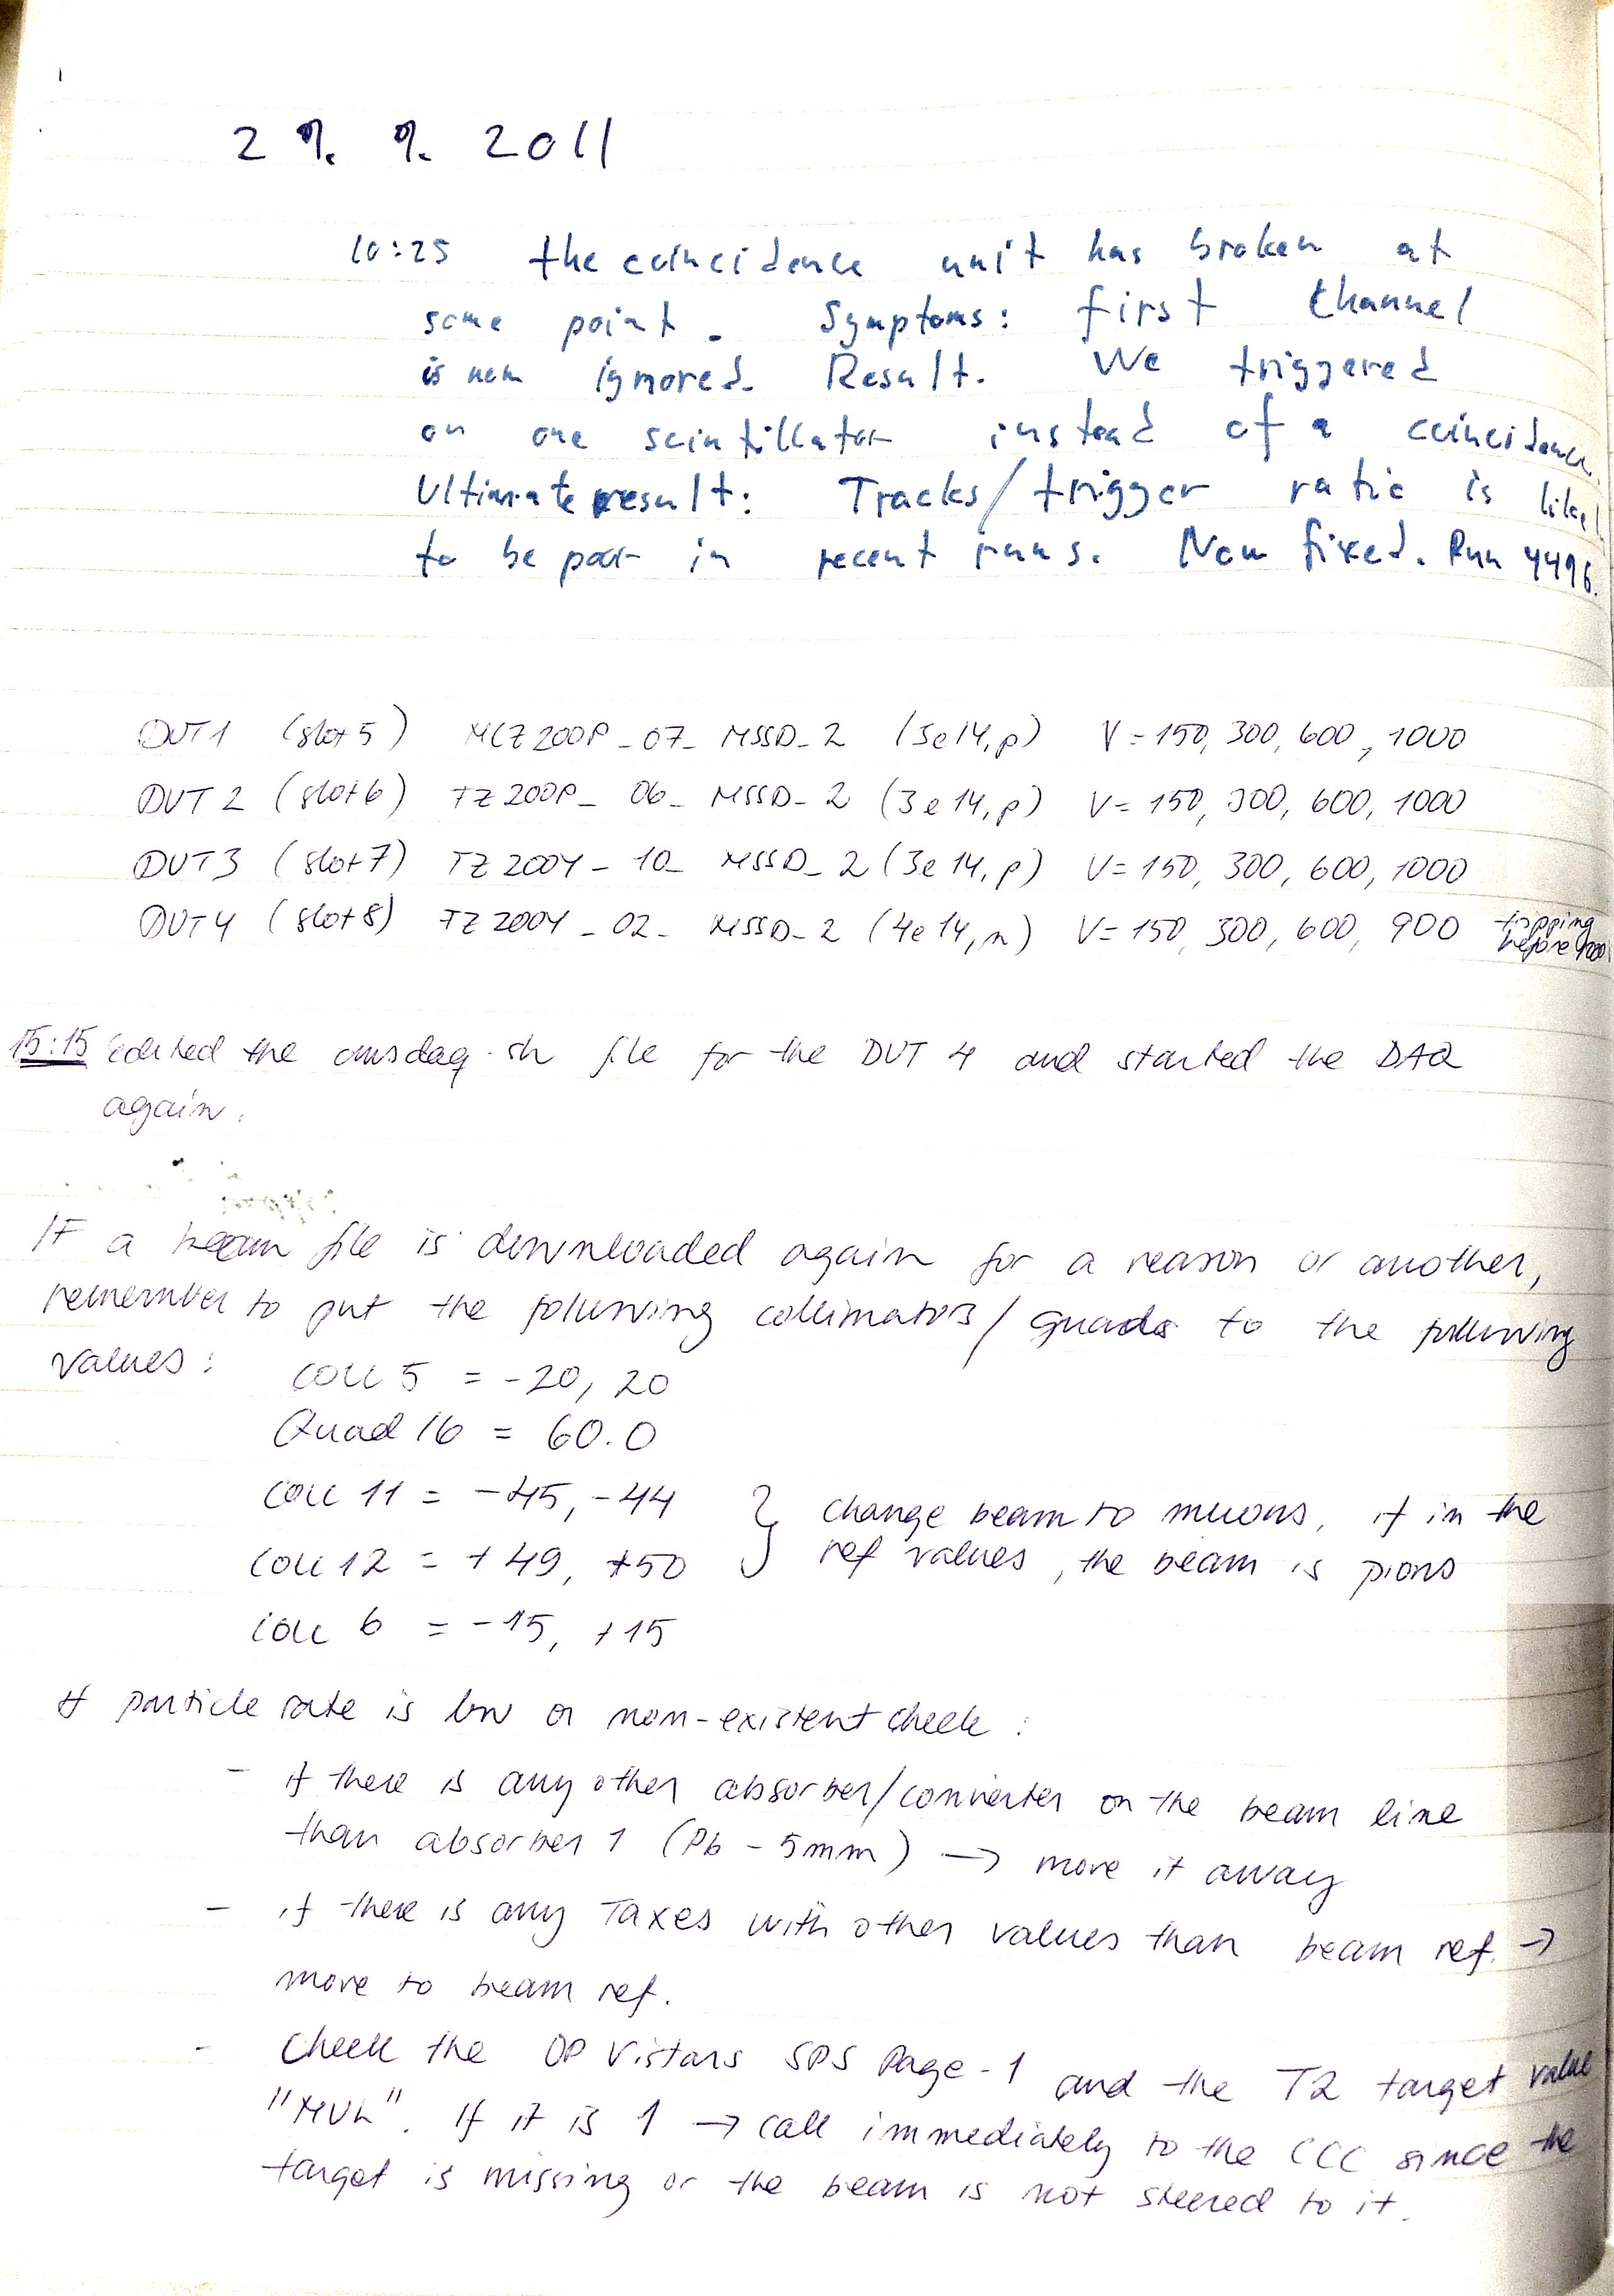 29. 9. 2011
10:25 the coincidence unit has broken at
some point. Symptoms: first channel
is now ignored. Result. We triggered
on one scintillator instead of a coincidence.
Ultimate result: Tracks/trigger ratio is likel
to be poor in recent runs. Now fixed. Run 4496.
DUT1 (slot 5) MCZ200P_07_MSSD_2 (3e14,p) V=150, 300, 600, 1000
DUT2 (slot 6) FZ200P_06_MSSD_2 (3e14,p) V=150, 300, 600, 1000
DUT3 (slot 7) FZ200Y_10_MSSD_2 (3e14,p) V=150, 300, 600, 1000
DUT4 (slot 8) FZ200Y_02_MSSD_2 (4e14,n) V=150, 300, 600, 900 tripping
before 1000
15:15 edited the cmsdaq.sh file for the DUT 4 and started the DAQ
again.
If a beam file is downloaded again for a reason or another,
remember to put the following collimators/quads to the following
values:
Coll 5 = -20, 20
Quad 16 = 60.0
Coll 11 = -45, -44 } change beam to muons, if in the
Coll 12 = +49, +50 ref values, the beam is pions
Coll 6 = -15, +15
If particle rate is low or non-existent check:
- if there is any other absorber/converter on the beam line
than absorber 1 (Pb - 5mm) → move it away
- if there is any Taxes with other values than beam ref. →
move to beam ref.
- Check the OP Vistars SPS Page-1 and the T2 target value
"MUL". If it is 1 → call immediately to the CCC since the
target is missing or the beam is not steered to it.